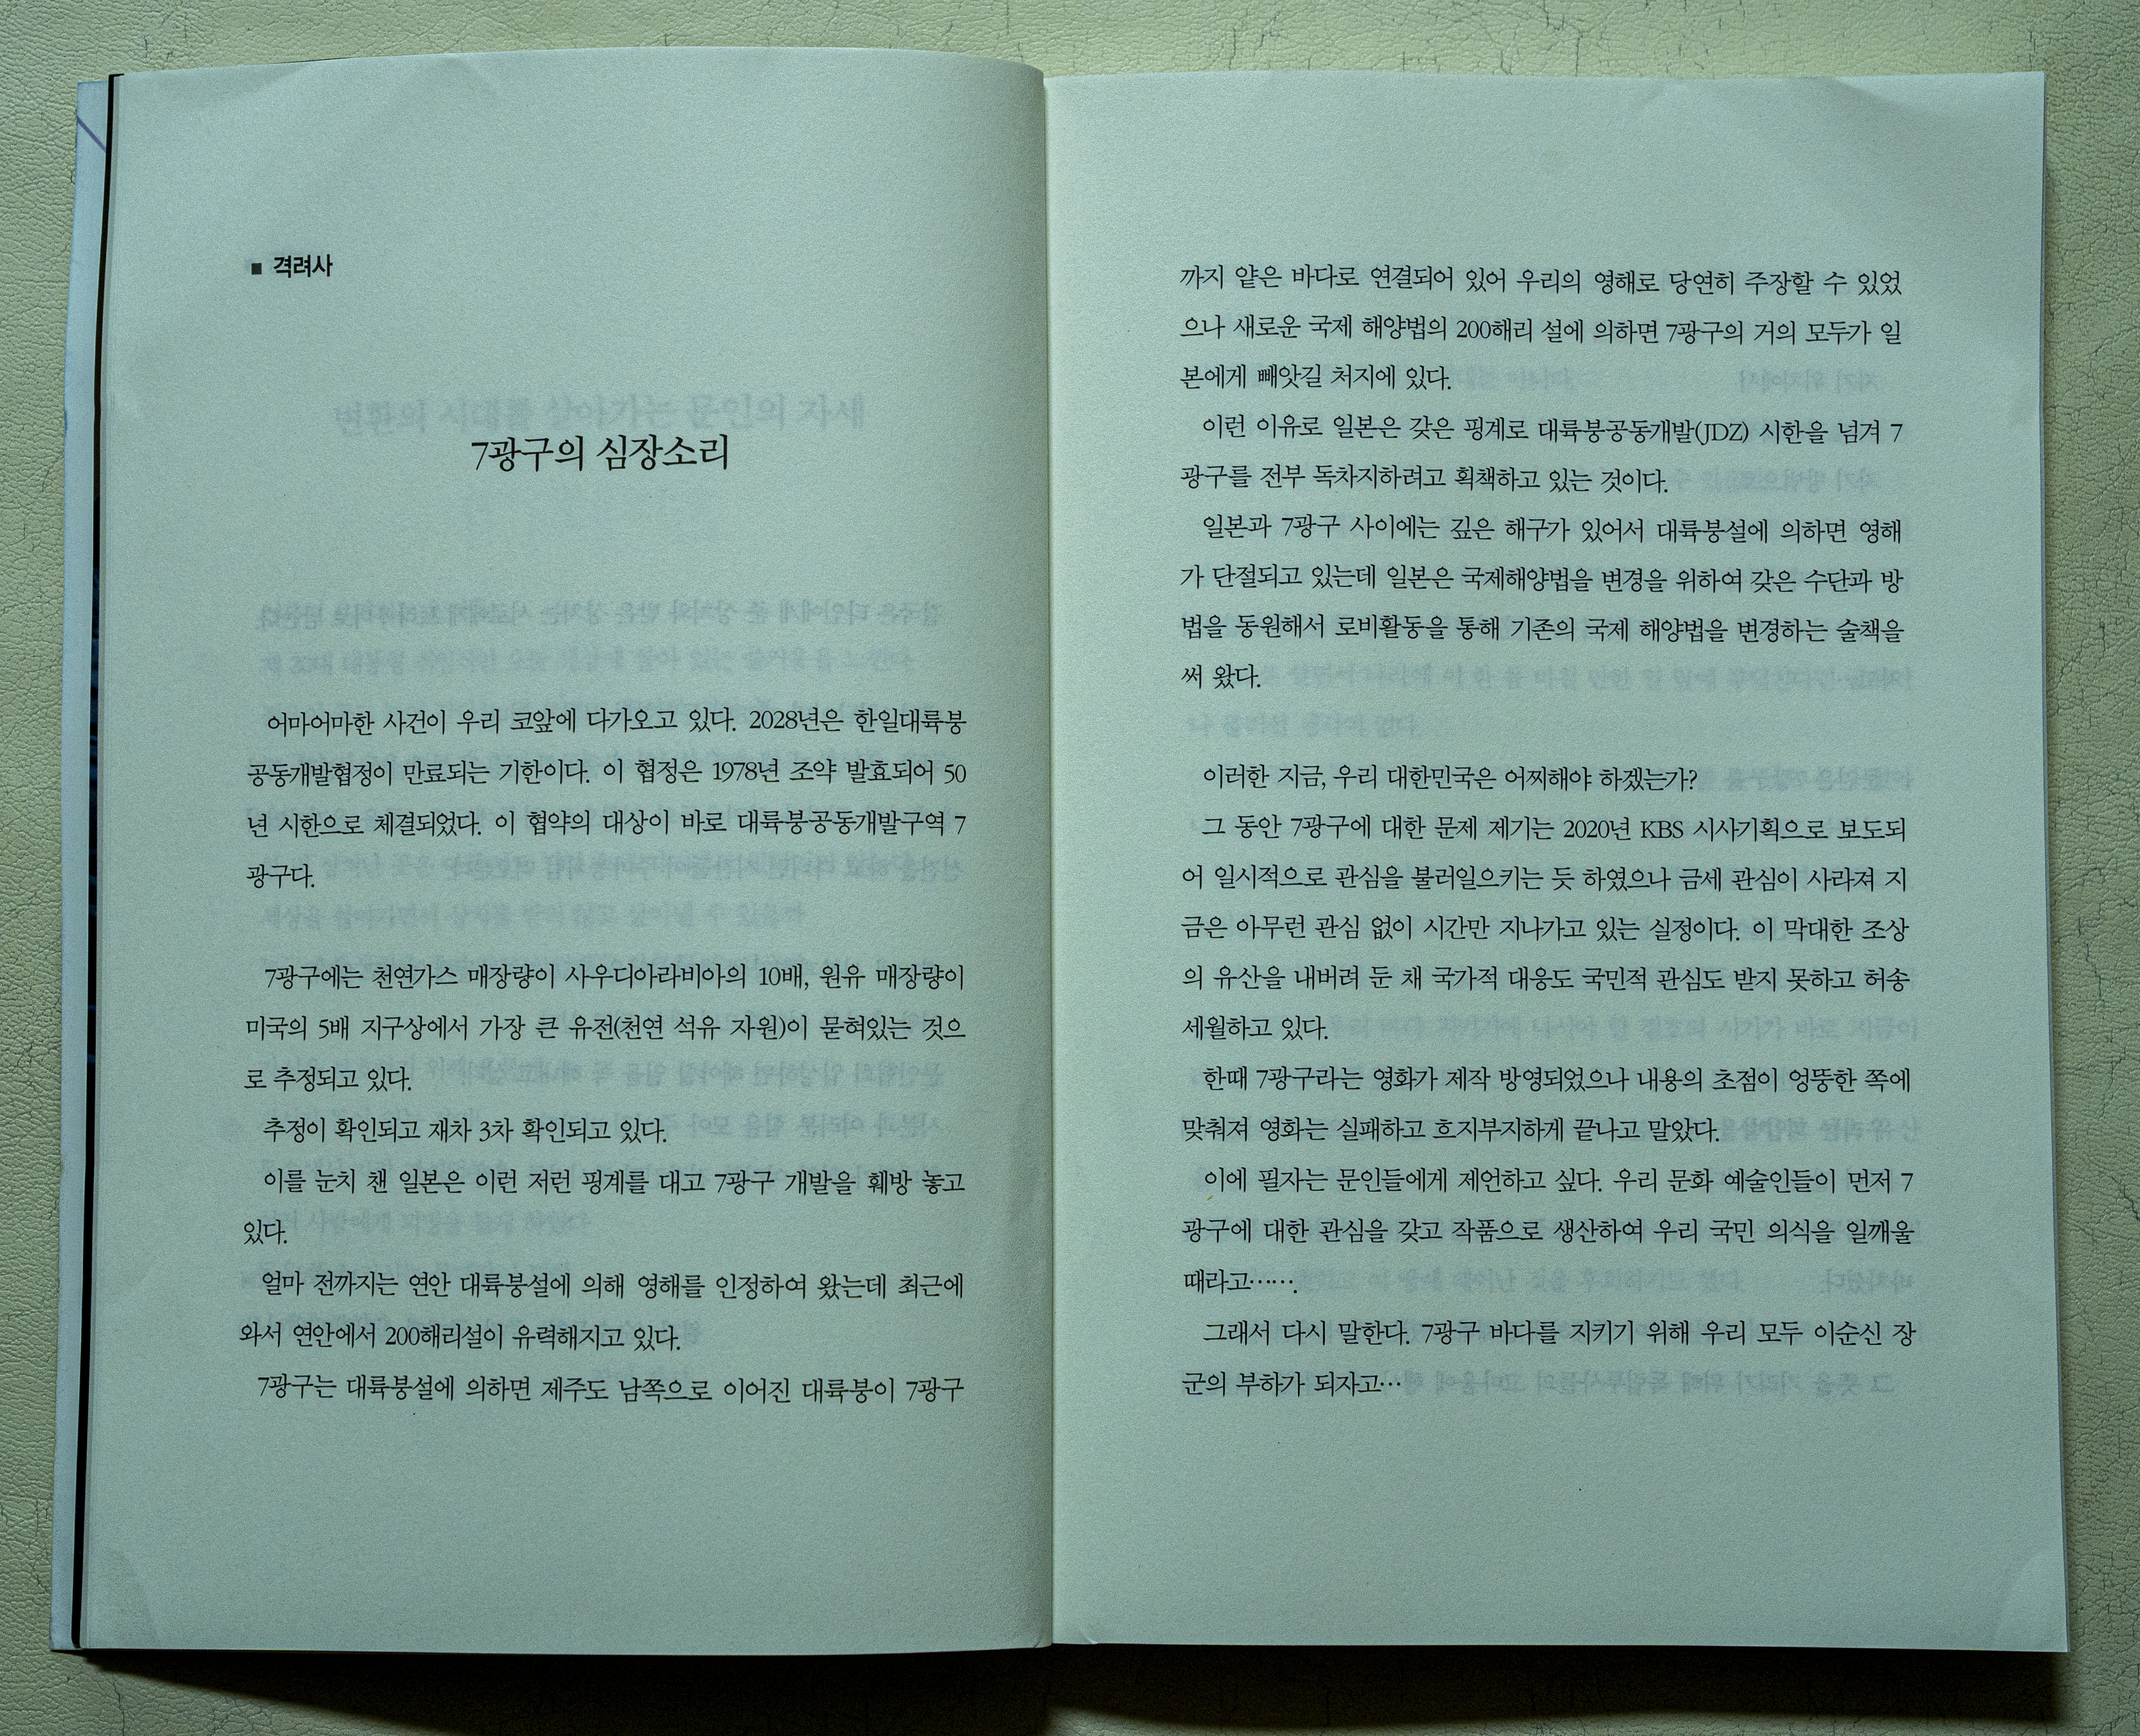 ■ 격려사
7광구의 심장소리
어마어마한 사건이 우리 코앞에 다가오고 있다. 2028년은 한일대륙붕
공동개발협정이 만료되는 기한이다. 이 협정은 1978년 조약 발효되어 50
년 시한으로 체결되었다. 이 협약의 대상이 바로 대륙붕공동개발구역 7
광구다.
7광구에는 천연가스 매장량이 사우디아라비아의 10배, 원유 매장량이
미국의 5배 지구상에서 가장 큰 유전(천연 석유 자원)이 묻혀있는 것으
로 추정되고 있다.
추정이 확인되고 재차 3차 확인되고 있다.
이를 눈치 챈 일본은 이런 저런 핑계를 대고 7광구 개발을 훼방 놓고
있다.
얼마 전까지는 연안 대륙붕설에 의해 영해를 인정하여 왔는데 최근에
와서 연안에서 200해리설이 유력해지고 있다.
7광구는 대륙붕설에 의하면 제주도 남쪽으로 이어진 대륙붕이 7광구
까지 얕은 바다로 연결되어 있어 우리의 영해로 당연히 주장할 수 있었
으나 새로운 국제 해양법의 200해리 설에 의하면 7광구의 거의 모두가 일
본에게 빼앗길 처지에 있다.
이런 이유로 일본은 갖은 핑계로 대륙붕공동개발(JDZ) 시한을 넘겨 7
광구를 전부 독차지하려고 획책하고 있는 것이다.
일본과 7광구 사이에는 깊은 해구가 있어서 대륙붕설에 의하면 영해
가 단절되고 있는데 일본은 국제해양법을 변경을 위하여 갖은 수단과 방
법을 동원해서 로비활동을 통해 기존의 국제 해양법을 변경하는 술책을
써 왔다.
이러한 지금, 우리 대한민국은 어찌해야 하겠는가?
그 동안 7광구에 대한 문제 제기는 2020년 KBS 시사기획으로 보도되
어 일시적으로 관심을 불러일으키는 듯 하였으나 금세 관심이 사라져 지
금은 아무런 관심 없이 시간만 지나가고 있는 실정이다. 이 막대한 조상
의 유산을 내버려 둔 채 국가적 대응도 국민적 관심도 받지 못하고 허송
세월하고 있다.
한때 7광구라는 영화가 제작 방영되었으나 내용의 초점이 엉뚱한 쪽에
맞춰져 영화는 실패하고 흐지부지하게 끝나고 말았다.
이에 필자는 문인들에게 제언하고 싶다. 우리 문화 예술인들이 먼저 7
광구에 대한 관심을 갖고 작품으로 생산하여 우리 국민 의식을 일깨울
때라고…….
그래서 다시 말한다. 7광구 바다를 지키기 위해 우리 모두 이순신 장
군의 부하가 되자고…